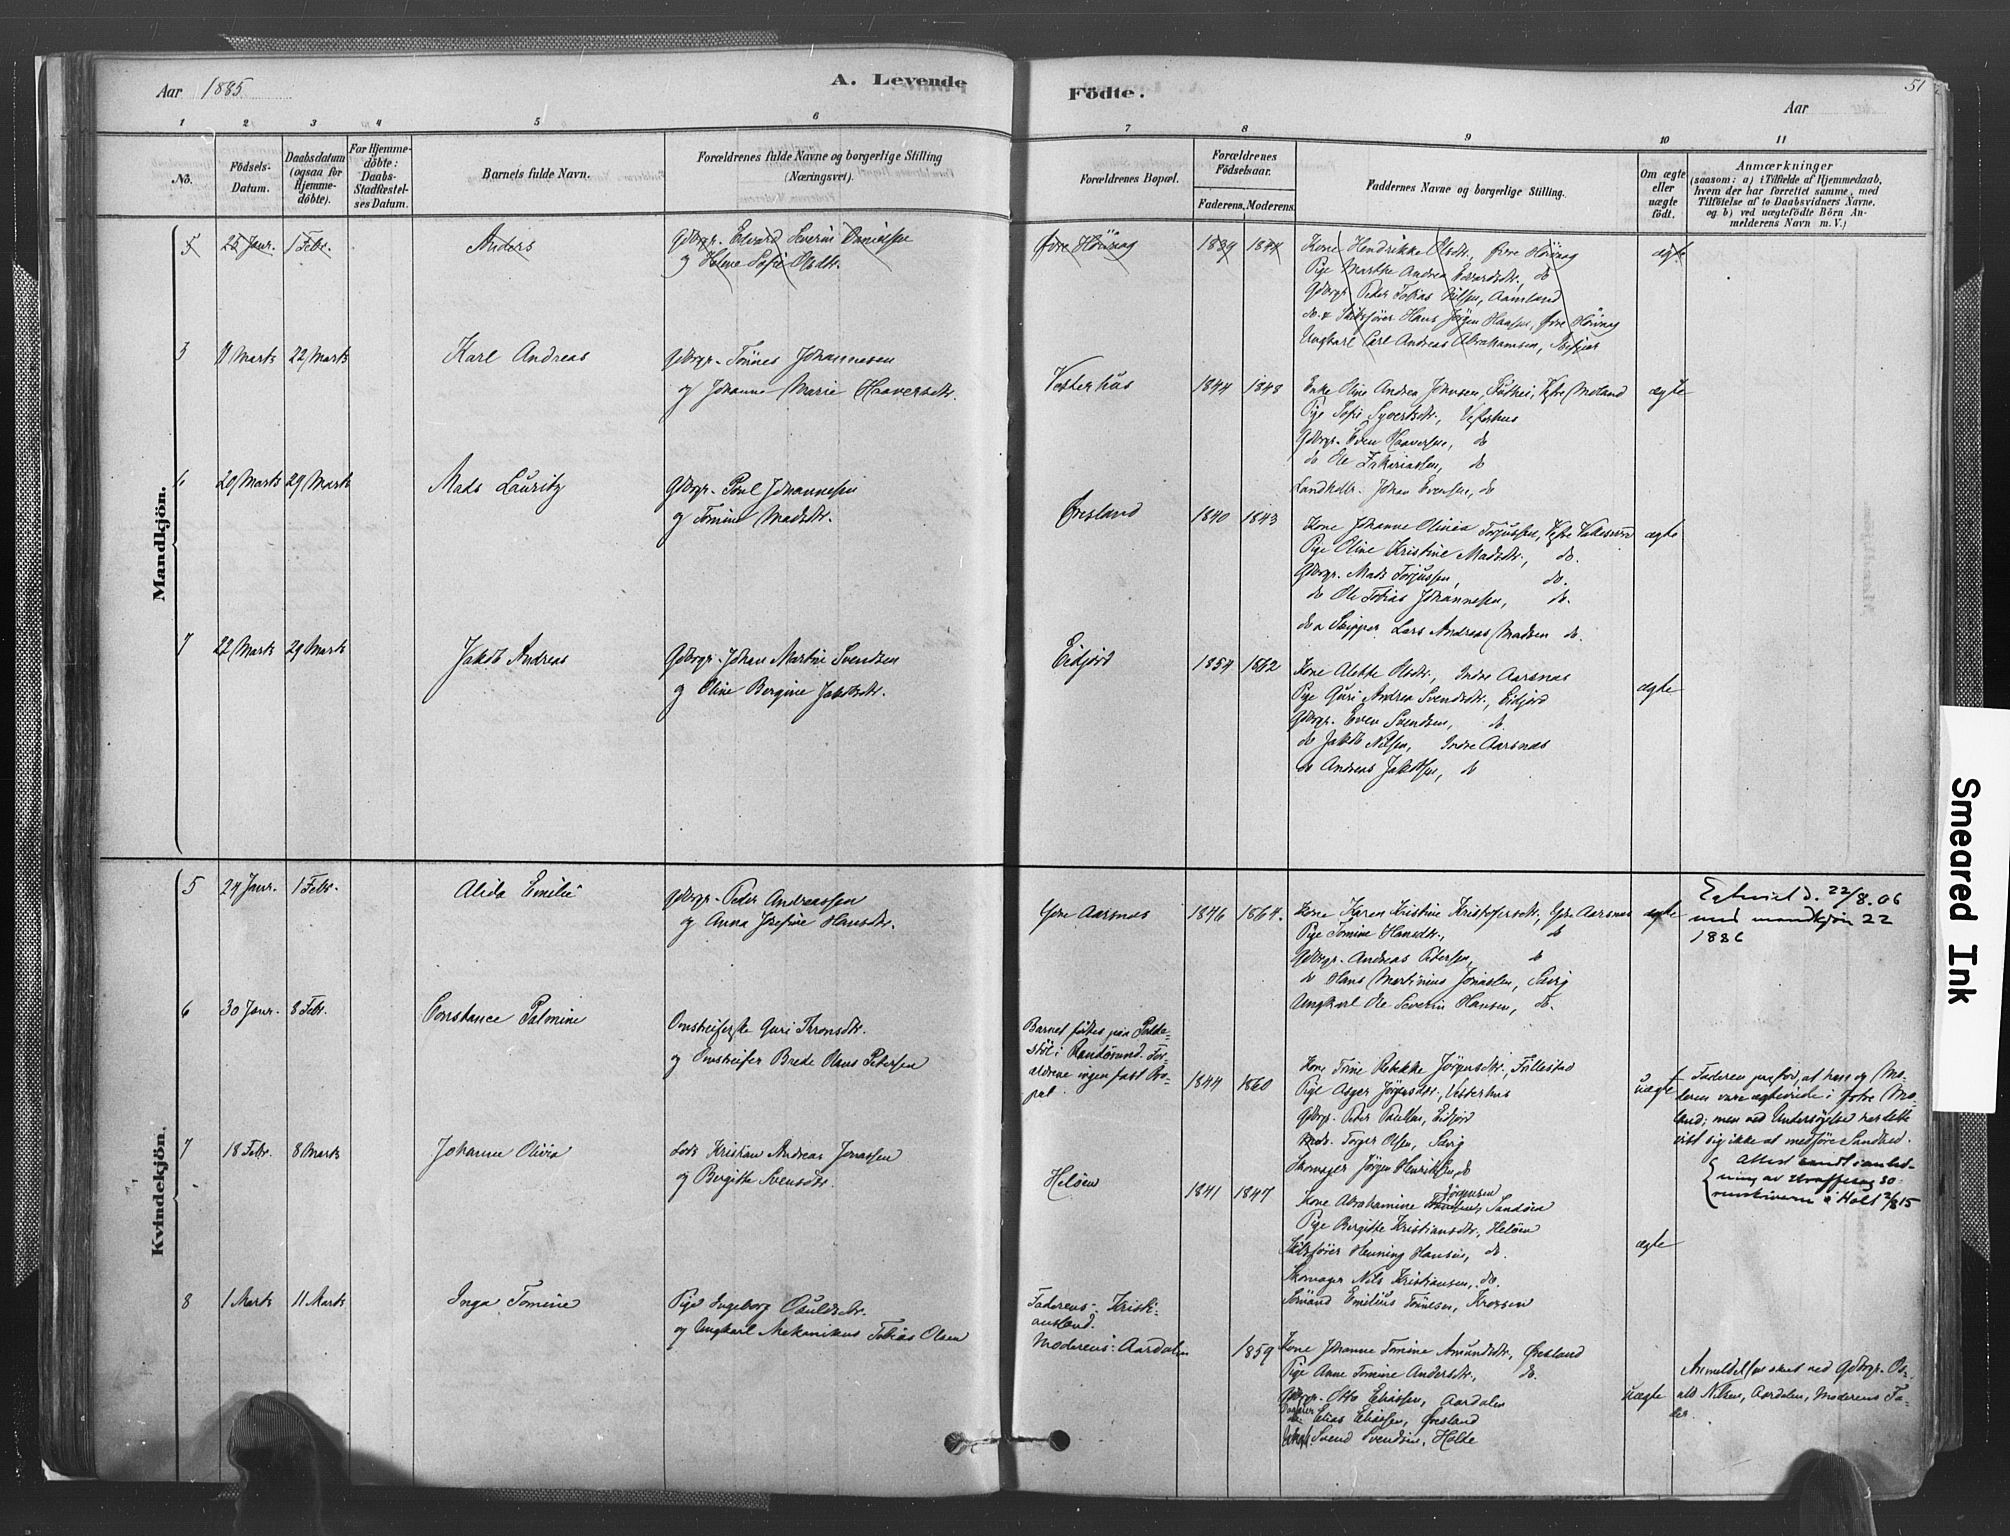 Aar 1885.
A. Levende
Födte.
Aar
51
1 2 3 4 5 6
7 8 9 10 11
No.
Födsels-
Datum.
Daabsdatum
(ogsaa for
Hjemme-
döbte).
For Hjemme-
döbte:
Daabs-
Stadfæstel-
ses Datum.
Barnets fulde Navn.
Forældrenes fulde Navne og borgerlige Stilling
(Næringsvei).
Forældrenes Bopæl.
Forældrenes
Födselsaar.
Faderens. Moderens.
Faddernes Navne og borgerlige Stilling.
Om ægte
eller
uægte
födt.
Anmærkninger
(saasom: a) i Tilfælde af Hjemmedaab,
hvem der har forrettet samme, med
Tilföielse af to Daabsvidners Navne,
og b) ved uægtefödte Börn An-
melderens Navn m. V.)
Mandkjön.
5 25 Janr. 1 Febr. Anders
Gdbrgr. Edvard Severin Danielsen
og Helene Sofie Olsdtr.
Øvre
1839 1844
Kone Hendrikke Olsdtr., Øvre
Pige Marthe Andrea Edvardsdtr., do
Gdbrgr. Peder Tobias Nilsen, Aamland
Hans Jörgen Hansen, Øvre
Ungkarl Carl Andreas Abrahamsen,
ægte
3 11 Marts 22 Marts Karl Andreas
Gdbrgr. Tönnes Johannesen
og Johanne Marie Haaversdtr.
Vesterhus
1844 1848
Enke Oline Andrea Johnsen, Moland
Pige Sofie Syvertsdtr., Vesterhus
Gdbrgr. Even Haaversen, do
do Ole Zakariasen, do
Landhdlr. Johan Evensen, do
ægte
6 20 Marts 29 Marts Mads Lauritz
Gdbrgr. Poul Johannesen
og Tomine Madsdtr.
Øresland
1840 1843
Kone Johanne Olivia Torjussen,
Pige Oline Kristine Madsdtr., do.
Gdbrgr. Mads Torjussen, do.
do Ole Tobias Johannesen, do.
do & Skipper Lars Andreas Madsen do.
ægte
7 22 Marts 29 Marts Jakob Andreas
Gdbrgr. Johan Martin Svendsen
og Oline Bergine Jakobsdtr.
Eidjord
1854 1862
Kone Alette Olsdtr., Indre Aarsnæs
Pige Guri Andrea Svendsdtr., Eidjord
Gdbrgr. Even Svendsen, do
do Jakob Nilsen, Indre Aarsnæs
do Andreas Jakobsen, do
ægte
Kvindekjön.
5 24 Janr. 1 Febr. Alida Emilie
Gdbrgr. Peder Andreassen
og Anna Josefine Hansdtr.
Ytre Aarsnæs
1846 1864.
Kone Karen Kristine Kristofersdtr., Ytre Aarsnæs
Pige Tomine Hansdtr., do
Gdbrgr. Andreas Pedersen, do
do Hans Martinius Jonassen,
Ungkarl Ole Severin Hansen, do.
ægte
22/8. 06
med mandkjøn 22
1886
6 30 Janr. 8 Febr. Constance Palmine
Omstreiferske Guri Thronsdtr.
og Omstreifer Brede Olaus Petersen
Barnet födtes paa
i Randösund. For-
ældrene ingen fast Bo-
pæl.
1844 1860
Kone Trine Rebekke Jörgensdtr., Fillestad
Pige Asger Jörgensdtr., Vesterhus
Gdbrgr. Peder Paulsen, Eidjord
Torger Olsen,
Skomager Jörgen Henriksen, do
uægte
Faderen paastod, at han og Mo-
deren vare ægteviede i Østre Mo-
land; men ved Undersögelse har dette
vist sig ikke at medföre Sandhed.
Attest sendt i anled-
ning av straffesag so-
renskriveren i Holt 2/8 15
7 18 Febr. 8 Marts Johanne Olivia
Lods Kristian Andreas Jonassen
og Bergitte Svensdtr.
Helöen
1841 1847
Kone Abrahamine Jörgensen, Sandöen
Pige Bergitte Kristiansdtr., Helöen
Skibsförer Henning Hansen, do.
Skomager Nils Kristiansen, do.
Sömand Emilius Tönnesen, Krossen
ægte
8 1 Marts 11 Marts Inga Tomine
Pige Ingeborg Osuldsdtr.
og Ungkarl Mekanikus Tobias Olsen
Faderens: Kristi-
ansand.
Moderens: Aardalen
1859
Kone Johanne Tomine Amundsdtr., Øresland
Pige Anne Tomine Andersdtr., do.
Gdbrgr. Otto Eliassen, Aardalen
Elias Eliassen, Øresland
Svend Svendsen, Holte
uægte
Anmeldelse sket ved Gdbrgr. Os-
uld Nilsen, Aardalen, Moderens Fa-
der.
Smeared Ink